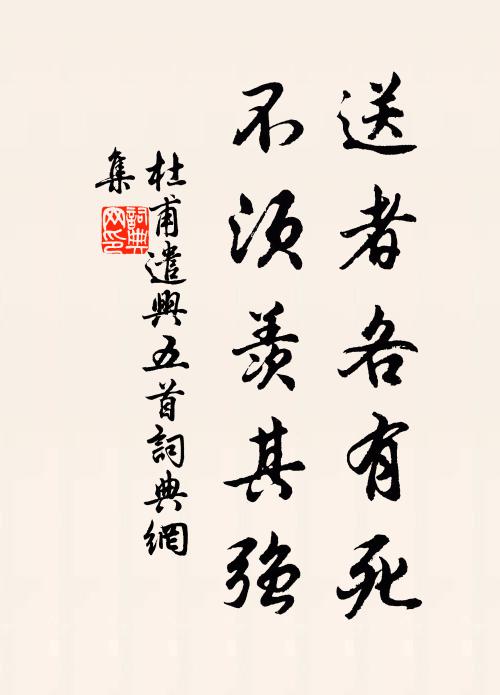 送者各有死
不須羨其強
杜甫遣興五首詞典網
集
詞典
网印